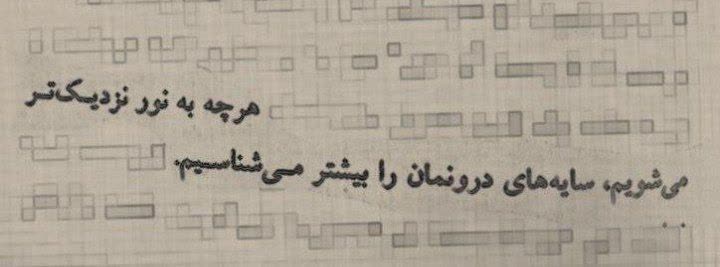 هرچه به نور نزدیک‌تر
می‌شویم، سایه‌های درونمان را بیشتر می‌شناسیم.
. .